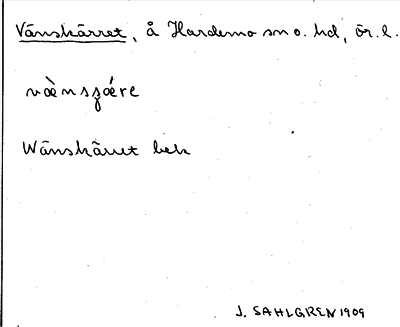 Vänskärret, å Hardemo sn o. hd, ör. l.
væ̀nsʒǽre
Wänskärret bek
J. SAHLGREN 1909